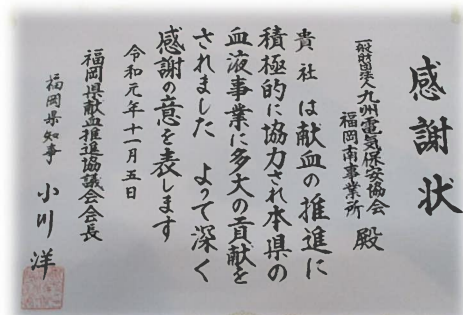 感謝状
一般財団法人九州電気保安協会
福岡南事業所 殿
貴社は献血の推進に
積極的に協力され本県の
血液事業に多大の貢献を
されました よって深く
感謝の意を表します
令和元年十一月五日
福岡県献血推進協議会会長
福岡県知事 小川洋